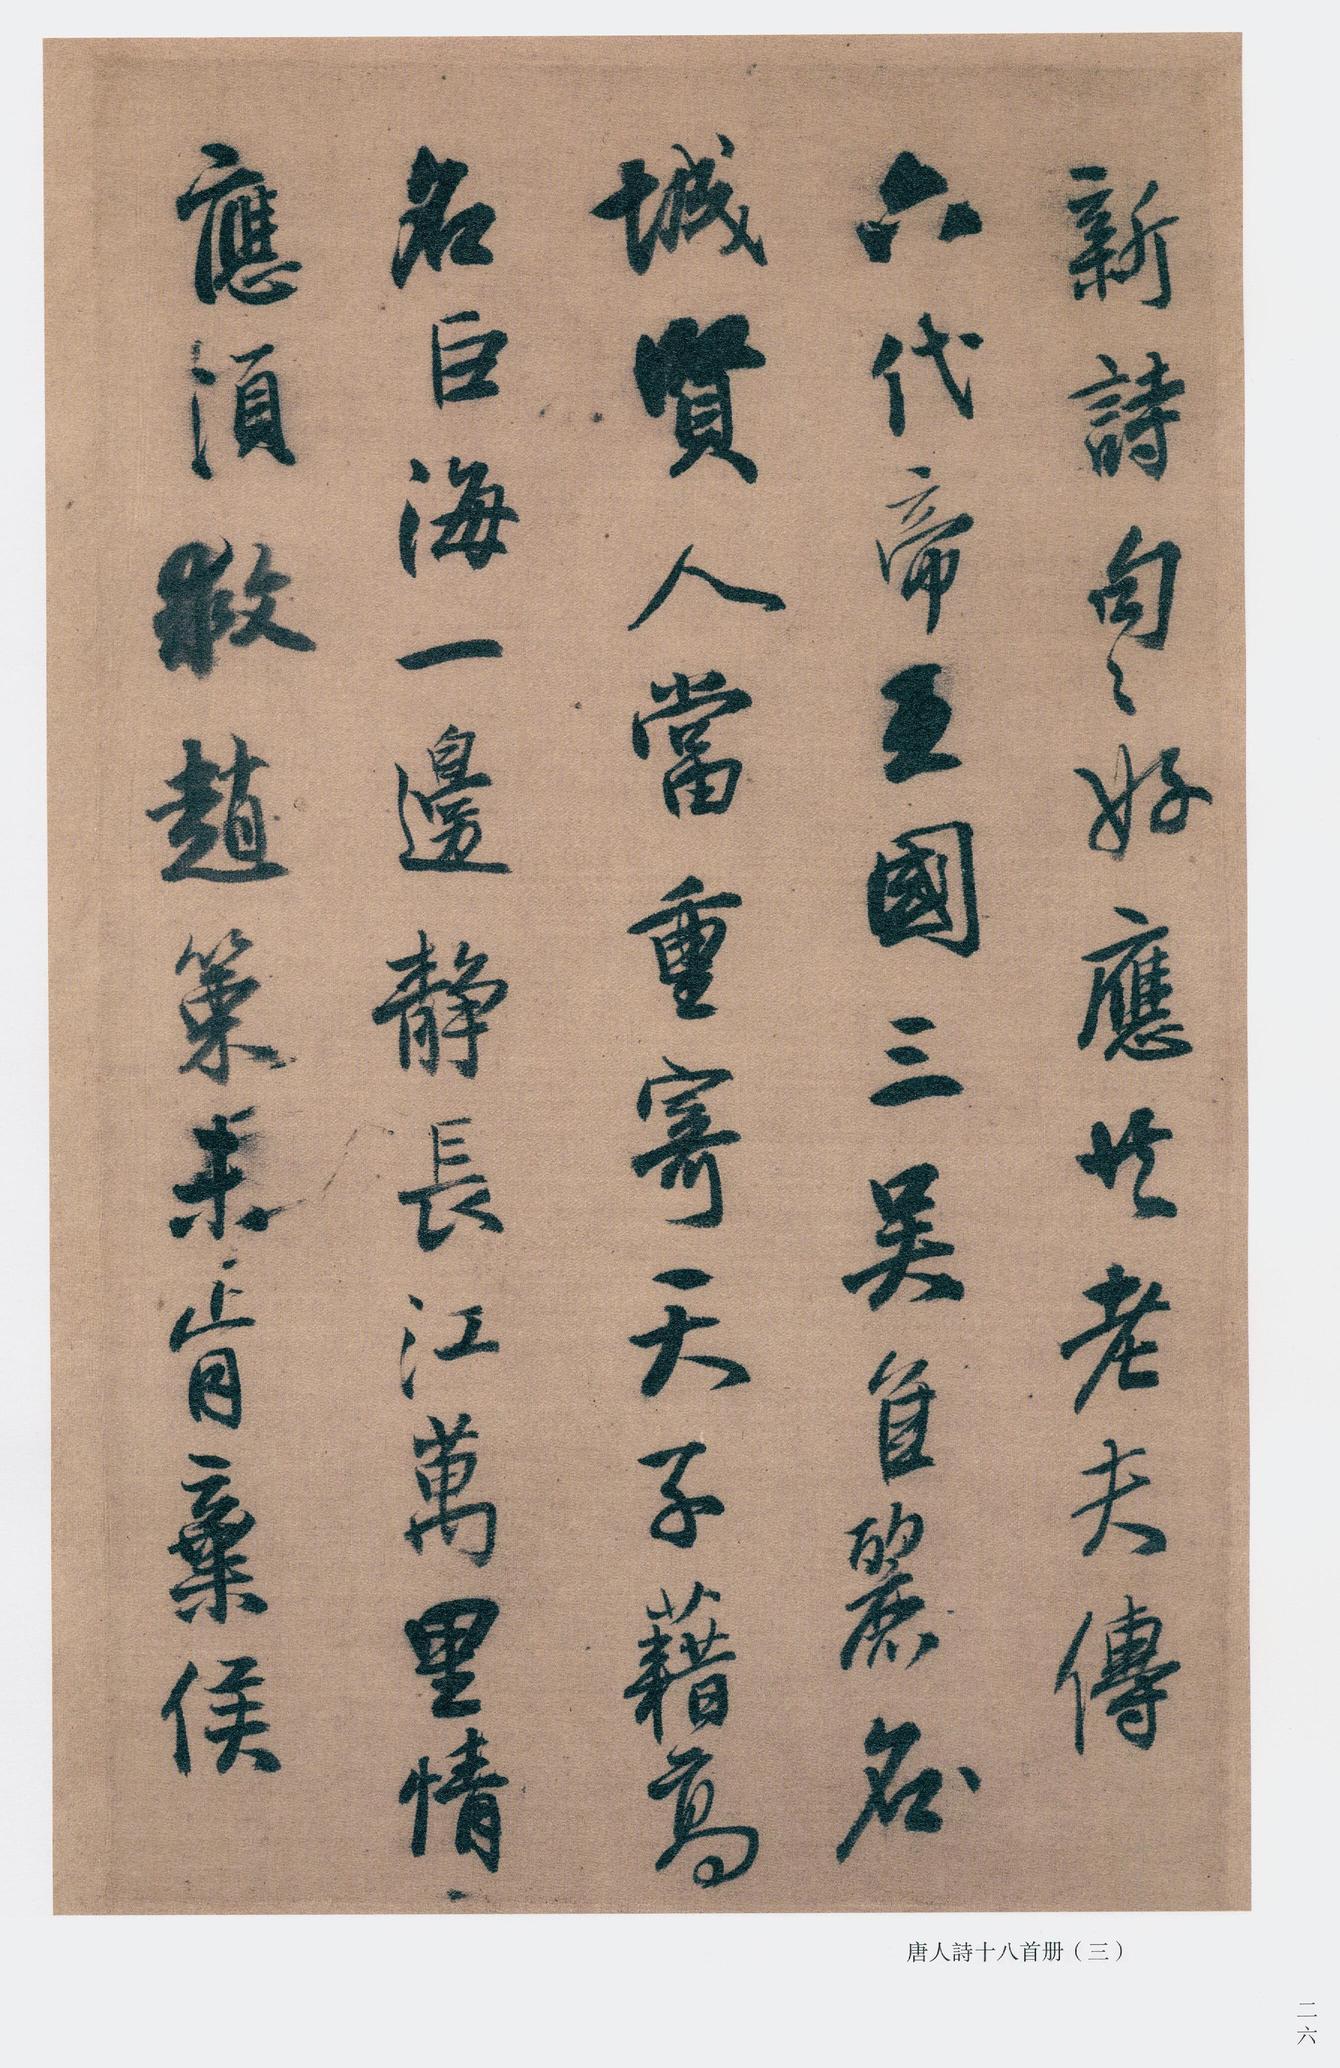 新詩句〻好應世老夫傳
六代帝王國三吳佳麗名
城賢人當重寄天子藉高
名巨海一邊静長江萬里情
應須救趙策未肯棄侯
唐人詩十八首册（三）
二六